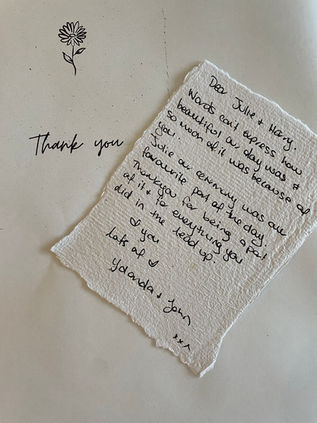 Thank you
Dear Julie + Harry.
Words can't express how
beautiful our day was +
so much of it was because of
you.
Julie our ceremony was our
favourite part of the day.
Thankyou for being a part
of it + for everything you
did in the lead up.
♡ you
lots of ♡
Yolanda + John
xxx